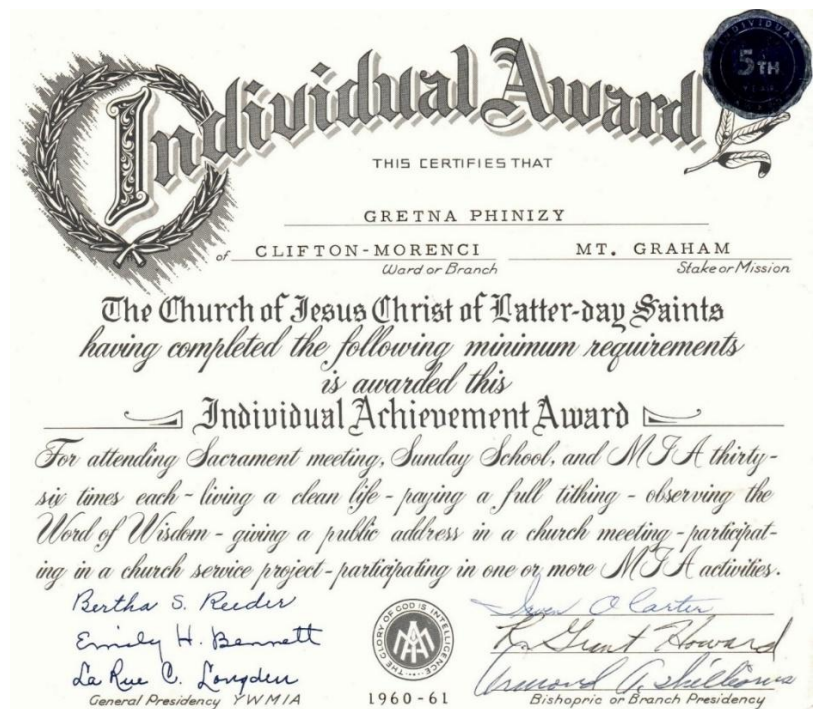 Individual Award
INDIVIDUAL
5TH
YEAR
THIS CERTIFIES THAT
GRETNA PHINIZY
of CLIFTON-MORENCI MT. GRAHAM
Ward or Branch Stake or Mission
The Church of Jesus Christ of Latter-day Saints
having completed the following minimum requirements
is awarded this
Individual Achievement Award
For attending Sacrament meeting, Sunday School, and MIA thirty-
six times each - living a clean life - paying a full tithing - observing the
Word of Wisdom - giving a public address in a church meeting - participat-
ing in a church service project - participating in one or more MIA activities.
Bertha S. Reeder
Emily H. Bennett
La Rue C. Longden
General Presidency YWMIA
THE GLORY OF GOD IS INTELLIGENCE
MIA
1960-61
O Carter
Grant Howard
Bishopric or Branch Presidency